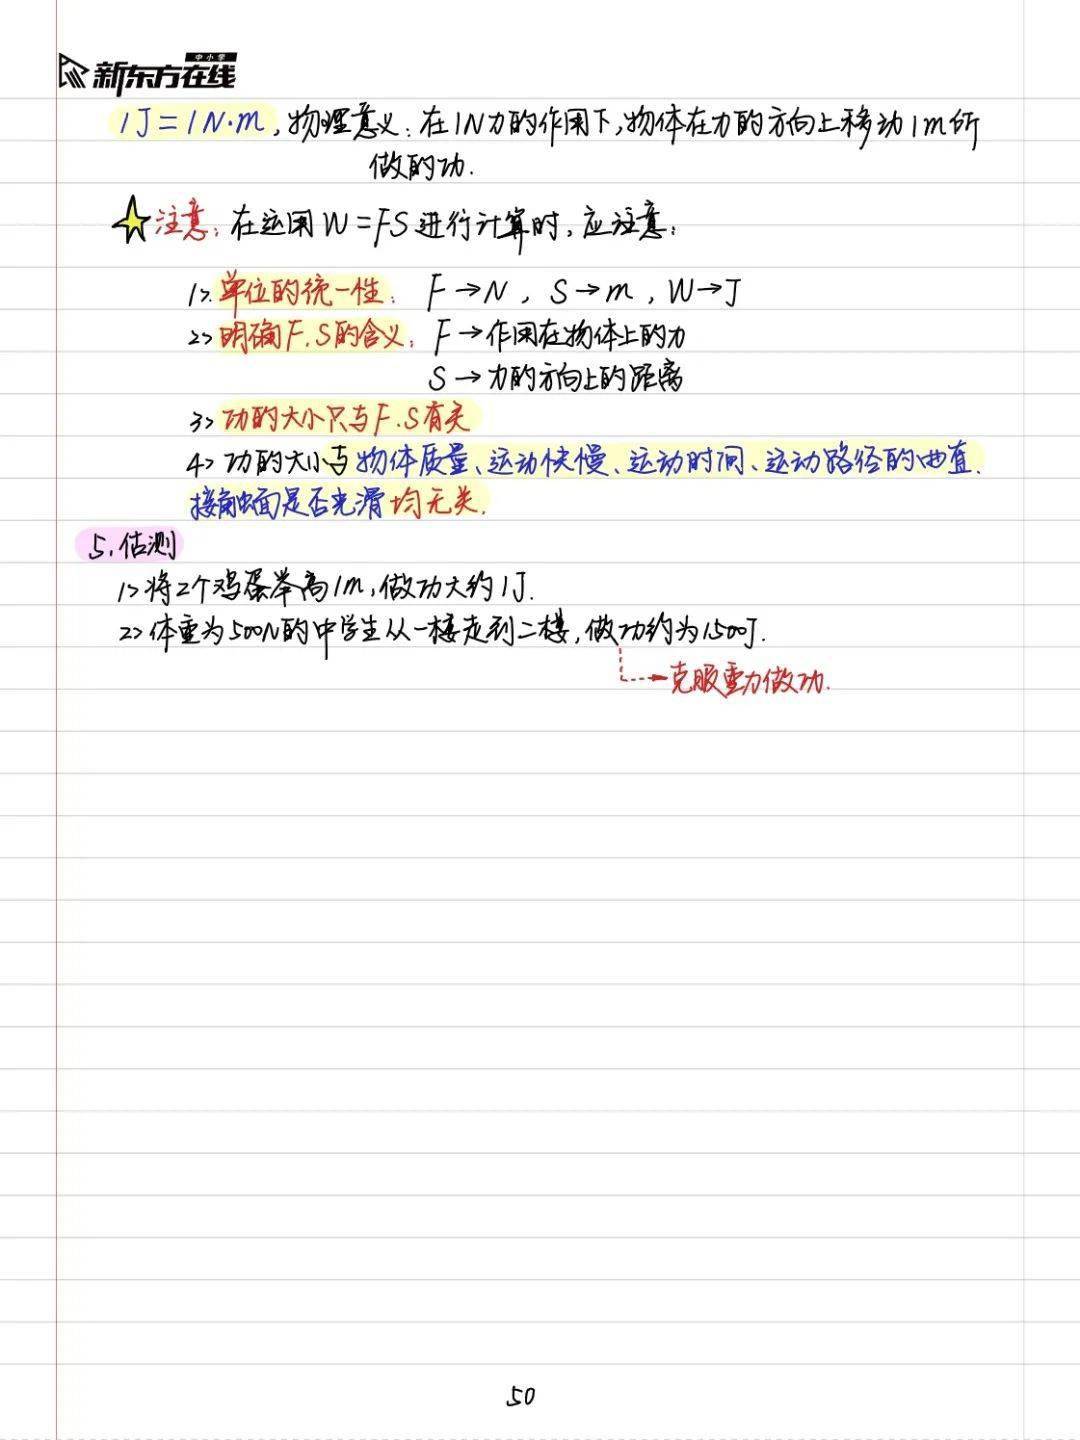 中小学
新东方在线
1J=1N·m,物理意义:在1N力的作用下,物体在力的方向上移动1m所
做的功.
注意:在运用W=FS进行计算时,应注意:
1>.单位的统一性: F→N, S→m, W→J
2>明确F.S的含义: F→作用在物体上的力
S→力的方向上的距离
3>功的大小只与F.S有关
4>功的大小与物体质量、运动快慢、运动时间、运动路径的曲直.
接触面是否光滑均无关.
5.估测
1>将2个鸡蛋举高1m,做功大约1J.
2>体重为500N的中学生从一楼走到二楼,做功约为1500J.
克服重力做功.
50